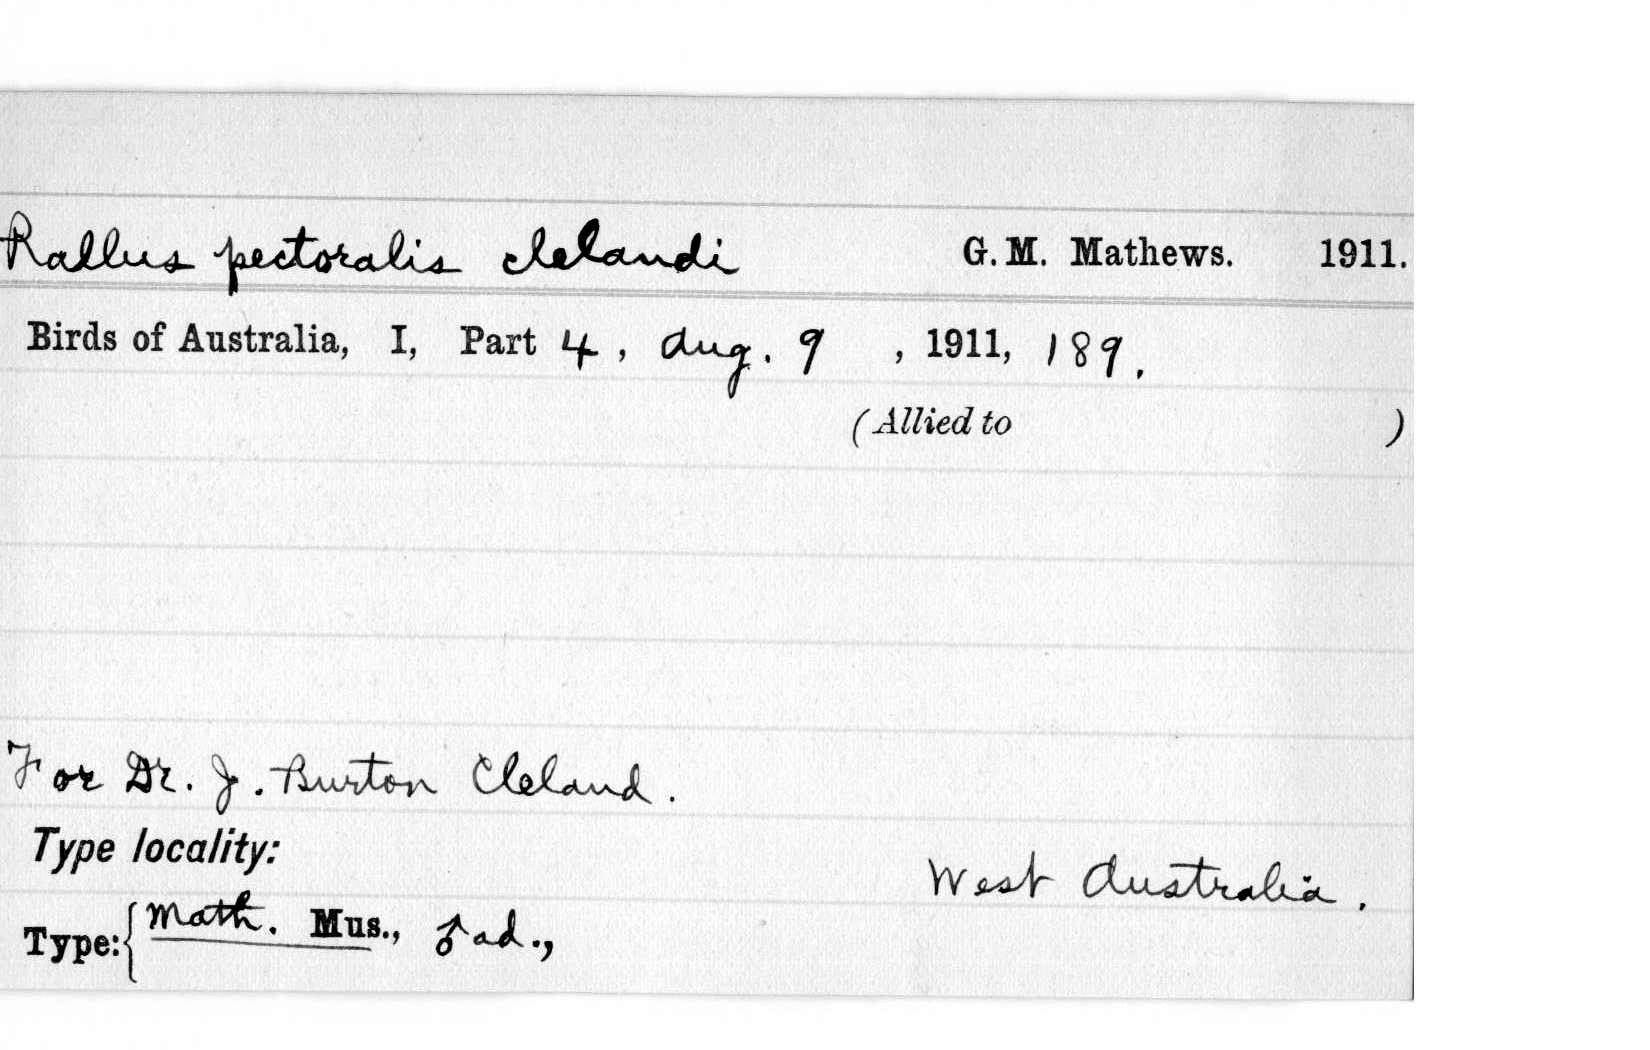 Rallus pectoralis clelandi G. M. Mathews. 1911.
Birds of Australia, I, Part 4, Aug. 9 , 1911, 189.
(Allied to )
For Dr. J. Burton Cleland.
Type locality:
West Australia.
Type: { Math. Mus., ♂ ad.,